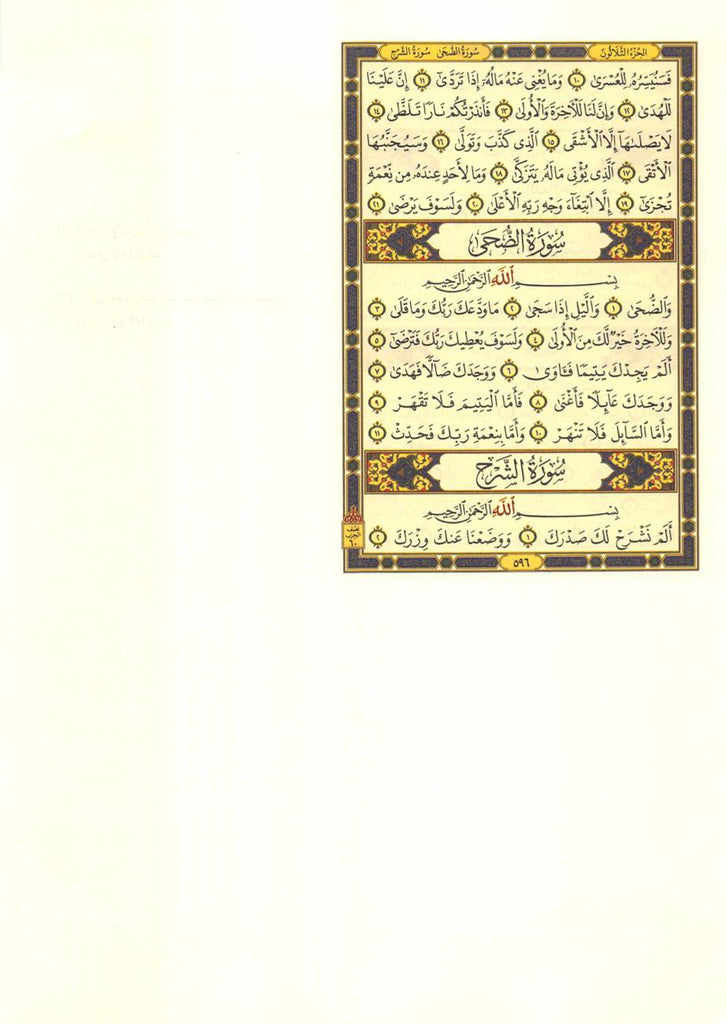 الجزء الثلاثون
سورة الضحى سورة الشرح
فَسَنُيَسِّرُهُۥ لِلۡعُسۡرَىٰ ١٠ وَمَا يُغۡنِي عَنۡهُ مَالُهُۥٓ إِذَا تَرَدَّىٰٓ ١١ إِنَّ عَلَيۡنَا
لَلۡهُدَىٰ ١٢ وَإِنَّ لَنَا لَلۡأٓخِرَةَ وَٱلۡأُولَىٰ ١٣ فَأَنذَرۡتُكُمۡ نَارٗا تَلَظَّىٰ ١٤
لَا يَصۡلَىٰهَآ إِلَّا ٱلۡأَشۡقَى ١٥ ٱلَّذِي كَذَّبَ وَتَوَلَّىٰ ١٦ وَسَيُجَنَّبُهَا
ٱلۡأَتۡقَى ١٧ ٱلَّذِي يُؤۡتِي مَالَهُۥ يَتَزَكَّىٰ ١٨ وَمَا لِأَحَدٍ عِندَهُۥ مِن نِّعۡمَةٖ
تُجۡزَىٰٓ ١٩ إِلَّا ٱبۡتِغَآءَ وَجۡهِ رَبِّهِ ٱلۡأَعۡلَىٰ ٢٠ وَلَسَوۡفَ يَرۡضَىٰ ٢١
سُورَةُ الضُّحَىٰ
بِسۡمِ ٱللَّهِ ٱلرَّحۡمَٰنِ ٱلرَّحِيمِ
وَٱلضُّحَىٰ ١ وَٱلَّيۡلِ إِذَا سَجَىٰ ٢ مَا وَدَّعَكَ رَبُّكَ وَمَا قَلَىٰ ٣
وَلَلۡأٓخِرَةُ خَيۡرٞ لَّكَ مِنَ ٱلۡأُولَىٰ ٤ وَلَسَوۡفَ يُعۡطِيكَ رَبُّكَ فَتَرۡضَىٰٓ ٥
أَلَمۡ يَجِدۡكَ يَتِيمٗا فَـَٔاوَىٰ ٦ وَوَجَدَكَ ضَآلّٗا فَهَدَىٰ ٧
وَوَجَدَكَ عَآئِلٗا فَأَغۡنَىٰ ٨ فَأَمَّا ٱلۡيَتِيمَ فَلَا تَقۡهَرۡ ٩
وَأَمَّا ٱلسَّآئِلَ فَلَا تَنۡهَرۡ ١٠ وَأَمَّا بِنِعۡمَةِ رَبِّكَ فَحَدِّثۡ ١١
سُورَةُ الشَّرۡحِ
بِسۡمِ ٱللَّهِ ٱلرَّحۡمَٰنِ ٱلرَّحِيمِ
أَلَمۡ نَشۡرَحۡ لَكَ صَدۡرَكَ ١ وَوَضَعۡنَا عَنكَ وِزۡرَكَ ٢
نصف
الحزب
٦٠
٥٩٦